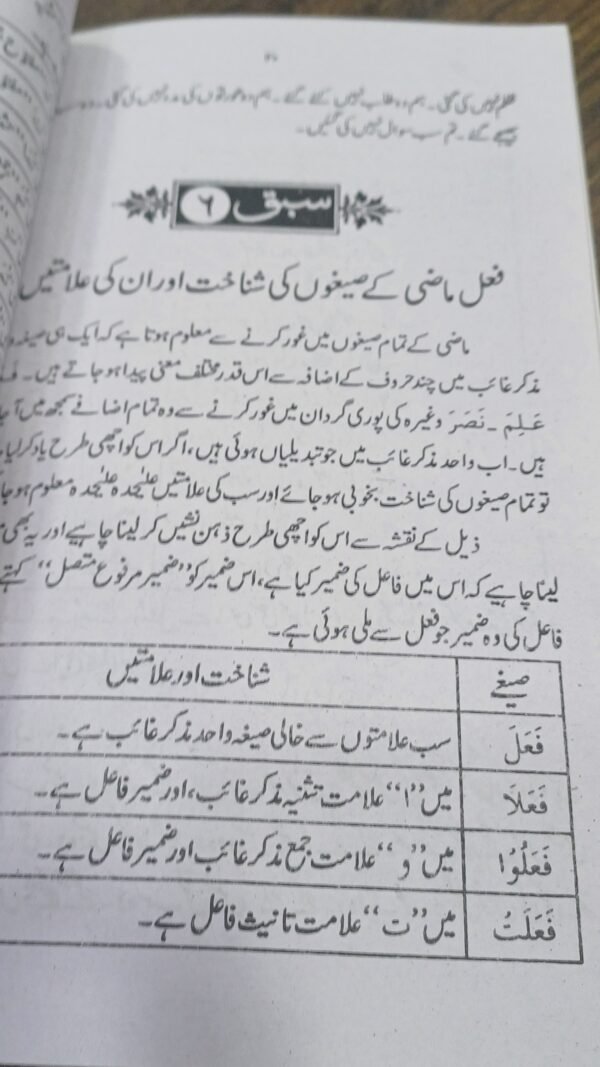 ۳۰
نہیں کی گئی۔ ہم دو طلب نہیں کئے گئے۔ ہم دو عورتوں کی مدد نہیں کی گئی۔
بھیجے گئے۔ تم سب سوال نہیں کی گئیں۔
سبق ۶
فعل ماضی کے صیغوں کی شناخت اور ان کی علامتیں
ماضی کے تمام صیغوں میں غور کرنے سے معلوم ہوتا ہے کہ ایک ہی صیغہ
مذکر غائب میں چند حروف کے اضافہ سے اس قدر مختلف معنی پیدا ہو جاتے ہیں۔
عَلِمَ۔ نَصَرَ وغیرہ کی پوری گردان میں غور کرنے سے وہ تمام اضافے سمجھ میں آ
ہیں۔ اب واحد مذکر غائب میں جو تبدیلیاں ہوئی ہیں، اگر اس کو اچھی طرح یاد کر لیا
تو تمام صیغوں کی شناخت بخوبی ہو جائے اور سب کی علامتیں علیٰحدہ علیٰحدہ معلوم ہو
ذیل کے نقشہ سے اس کو اچھی طرح ذہن نشیں کر لینا چاہیے اور یہ بھی
لینا چاہیے کہ اس میں فاعل کی ضمیر کیا ہے، اس ضمیر کو ”ضمیر مرفوع متصل“ کہتے
فاعل کی وہ ضمیر جو فعل سے ملی ہوئی ہے۔
صیغے شناخت اور علامتیں
فَعَلَ سب علامتوں سے خالی صیغہ واحد مذکر غائب ہے۔
فَعَلَا میں ”ا“ علامت تثنیہ مذکر غائب، اور ضمیر فاعل ہے۔
فَعَلُوْا میں ”و“ علامت جمع مذکر غائب اور ضمیر فاعل ہے۔
فَعَلَتْ میں ”ت“ علامت تانیث فاعل ہے۔